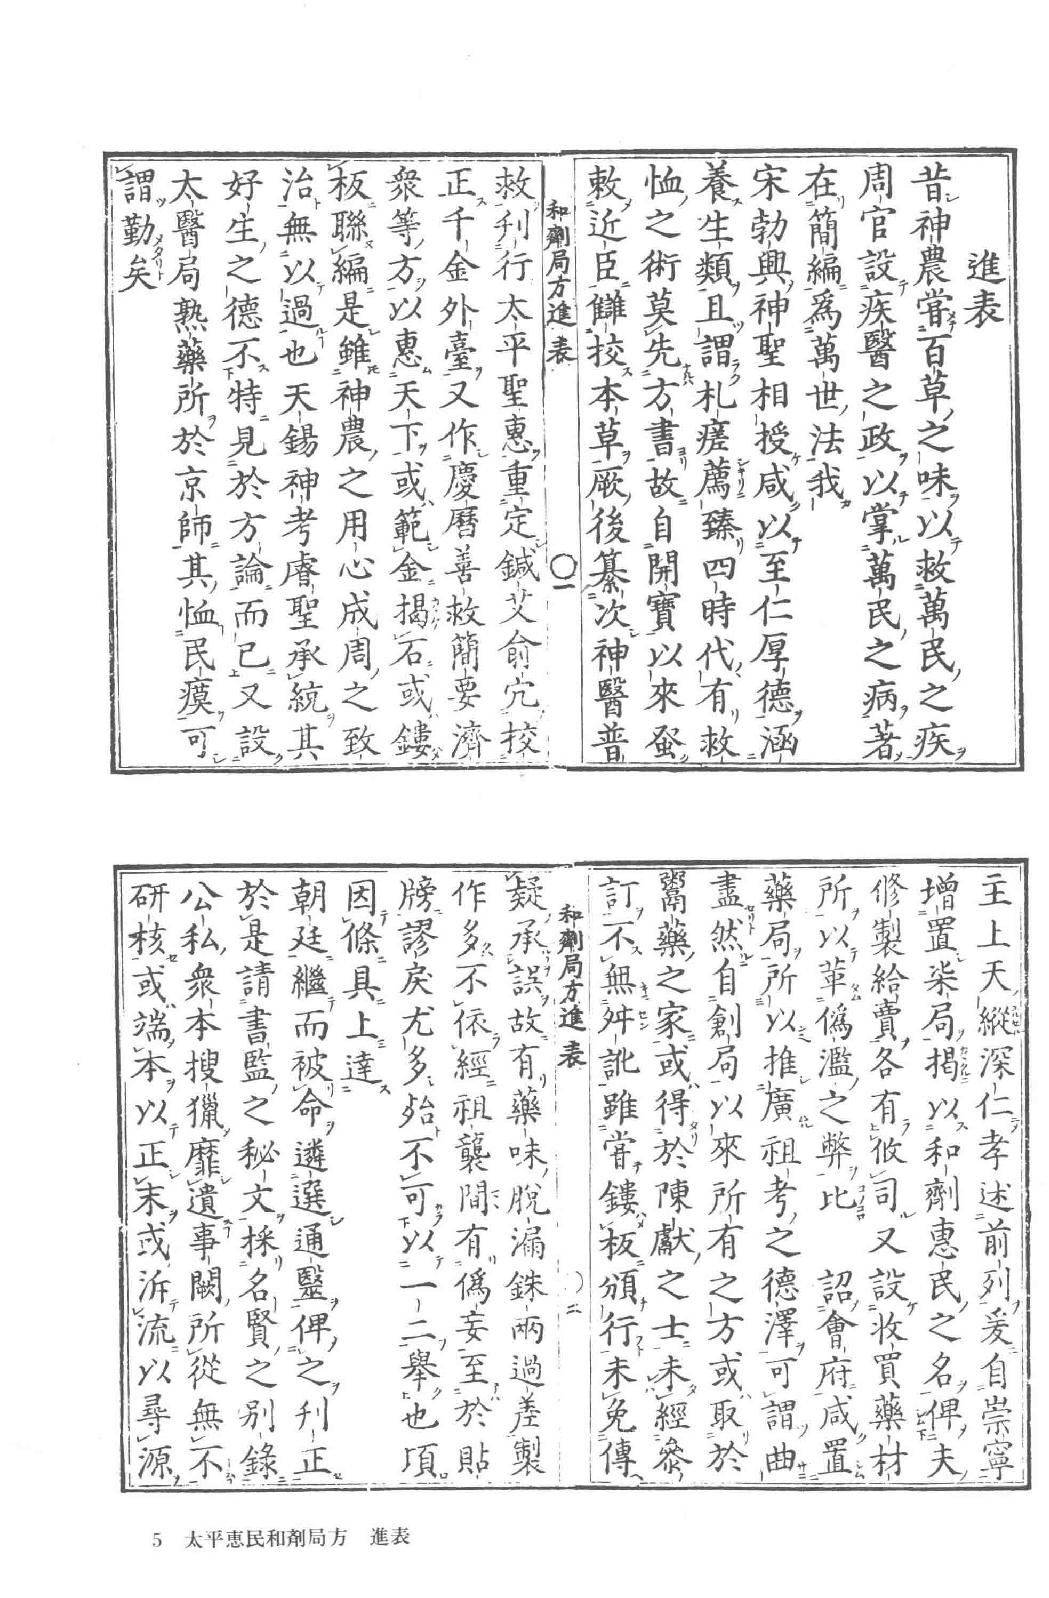 進表
昔神農嘗百草之味以救萬民之疾
周官設疾醫之政以掌萬民之病著
在簡編爲萬世法我
宋勃興神聖相授咸以至仁厚德涵
養生類且謂札瘥薦臻四時代有救
恤之術莫先方書故自開寶以來蚤
敕近臣讎挍本草厥後纂次神醫普
和劑局方進表
〇一
救刋行太平聖惠重定鍼艾俞穴挍
正千金外臺又作慶曆善救簡要濟
衆等方以惠天下或範金揭石或鏤
板聯編是雖神農之用心成周之致
治無以過也天錫神考睿聖承統其
好生之德不特見於方論而已又設
太醫局熟藥所於京師其恤民瘼可
謂勤矣
主上天縱深仁孝述前列爰自崇寧
增置柒局揭以和劑惠民之名俾夫
修製給賣各有攸司又設收買藥材
所以革僞濫之弊比 詔會府咸置
藥局所以推廣祖考之德澤可謂曲
盡然自創局以來所有之方或取於
鬻藥之家或得於陳獻之士未經參
訂不無舛訛雖嘗鏤板頒行未免傳
和劑局方進表
〇二
疑承誤故有藥味脫漏銖兩過差製
作多不依經祖襲間有僞妄至於貼
牓謬戾尤多殆不可以一二舉也項
因條具上達
朝廷繼而被命遴選通醫俾之刋正
於是請書監之秘文採名賢之別錄
公私衆本搜獵靡遺事闕所從無不
研核或端本以正末或泝流以尋源
5 太平恵民和剤局方 進表